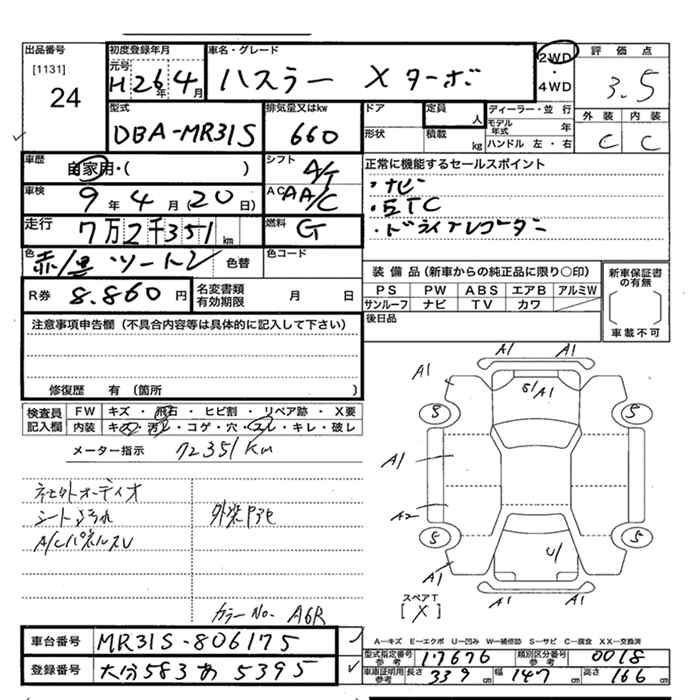 出品番号 初度登録年月 車名・グレード 2WD 評価点
[1131] 元号
24 H 26年 4月 ハスラー Xターボ ・ 4WD 3.5
型式 排気量又はkw ドア 定員 人 ディーラー・並行 外装 内装
DBA-MR31S 660 形状 積載 kg モデル年式 年 C C
ハンドル 左・右
車歴 自家用・( ) シフト A/T 正常に機能するセールスポイント
車検 9年 4月 (20日) AC AA/C ・ナビ
・ETC
走行 7万2千351km 燃料 G ・ドライブレコーダー
色 赤/黒 ツートン 色替 色コード
装備品(新車からの純正品に限り○印) 新車保証書の有無
R券 8.860円 名変書類有効期限 月 日 PS PW ABS エアB アルミW
サンルーフ ナビ TV カワ ( )
注意事項申告欄(不具合内容等は具体的に記入して下さい) 後日品 車載不可
修復歴 有(箇所 )
検査員 FW キズ・飛石・ヒビ割・リペア跡・X要
記入欄 内装 キズ・汚レ・コゲ・穴・スレ・キレ・破レ
メーター指示 72351Km
A1 A1
A1 S/A1
S S
A1
A2
S S
U1
A1
A1 A1
外装
スペアT
[X]
カラーNo. A6R
A―キズ E―エクボ U―凹み W―補修跡 S―サビ C―腐食 XX―交換済
車台番号 MR31S-806175 型式指定番号 参考 17676 類別区分番号 参考 0018
登録番号 大分583あ5395 車庫証明用 参考 長さ 339cm 幅 147cm 高さ 166cm